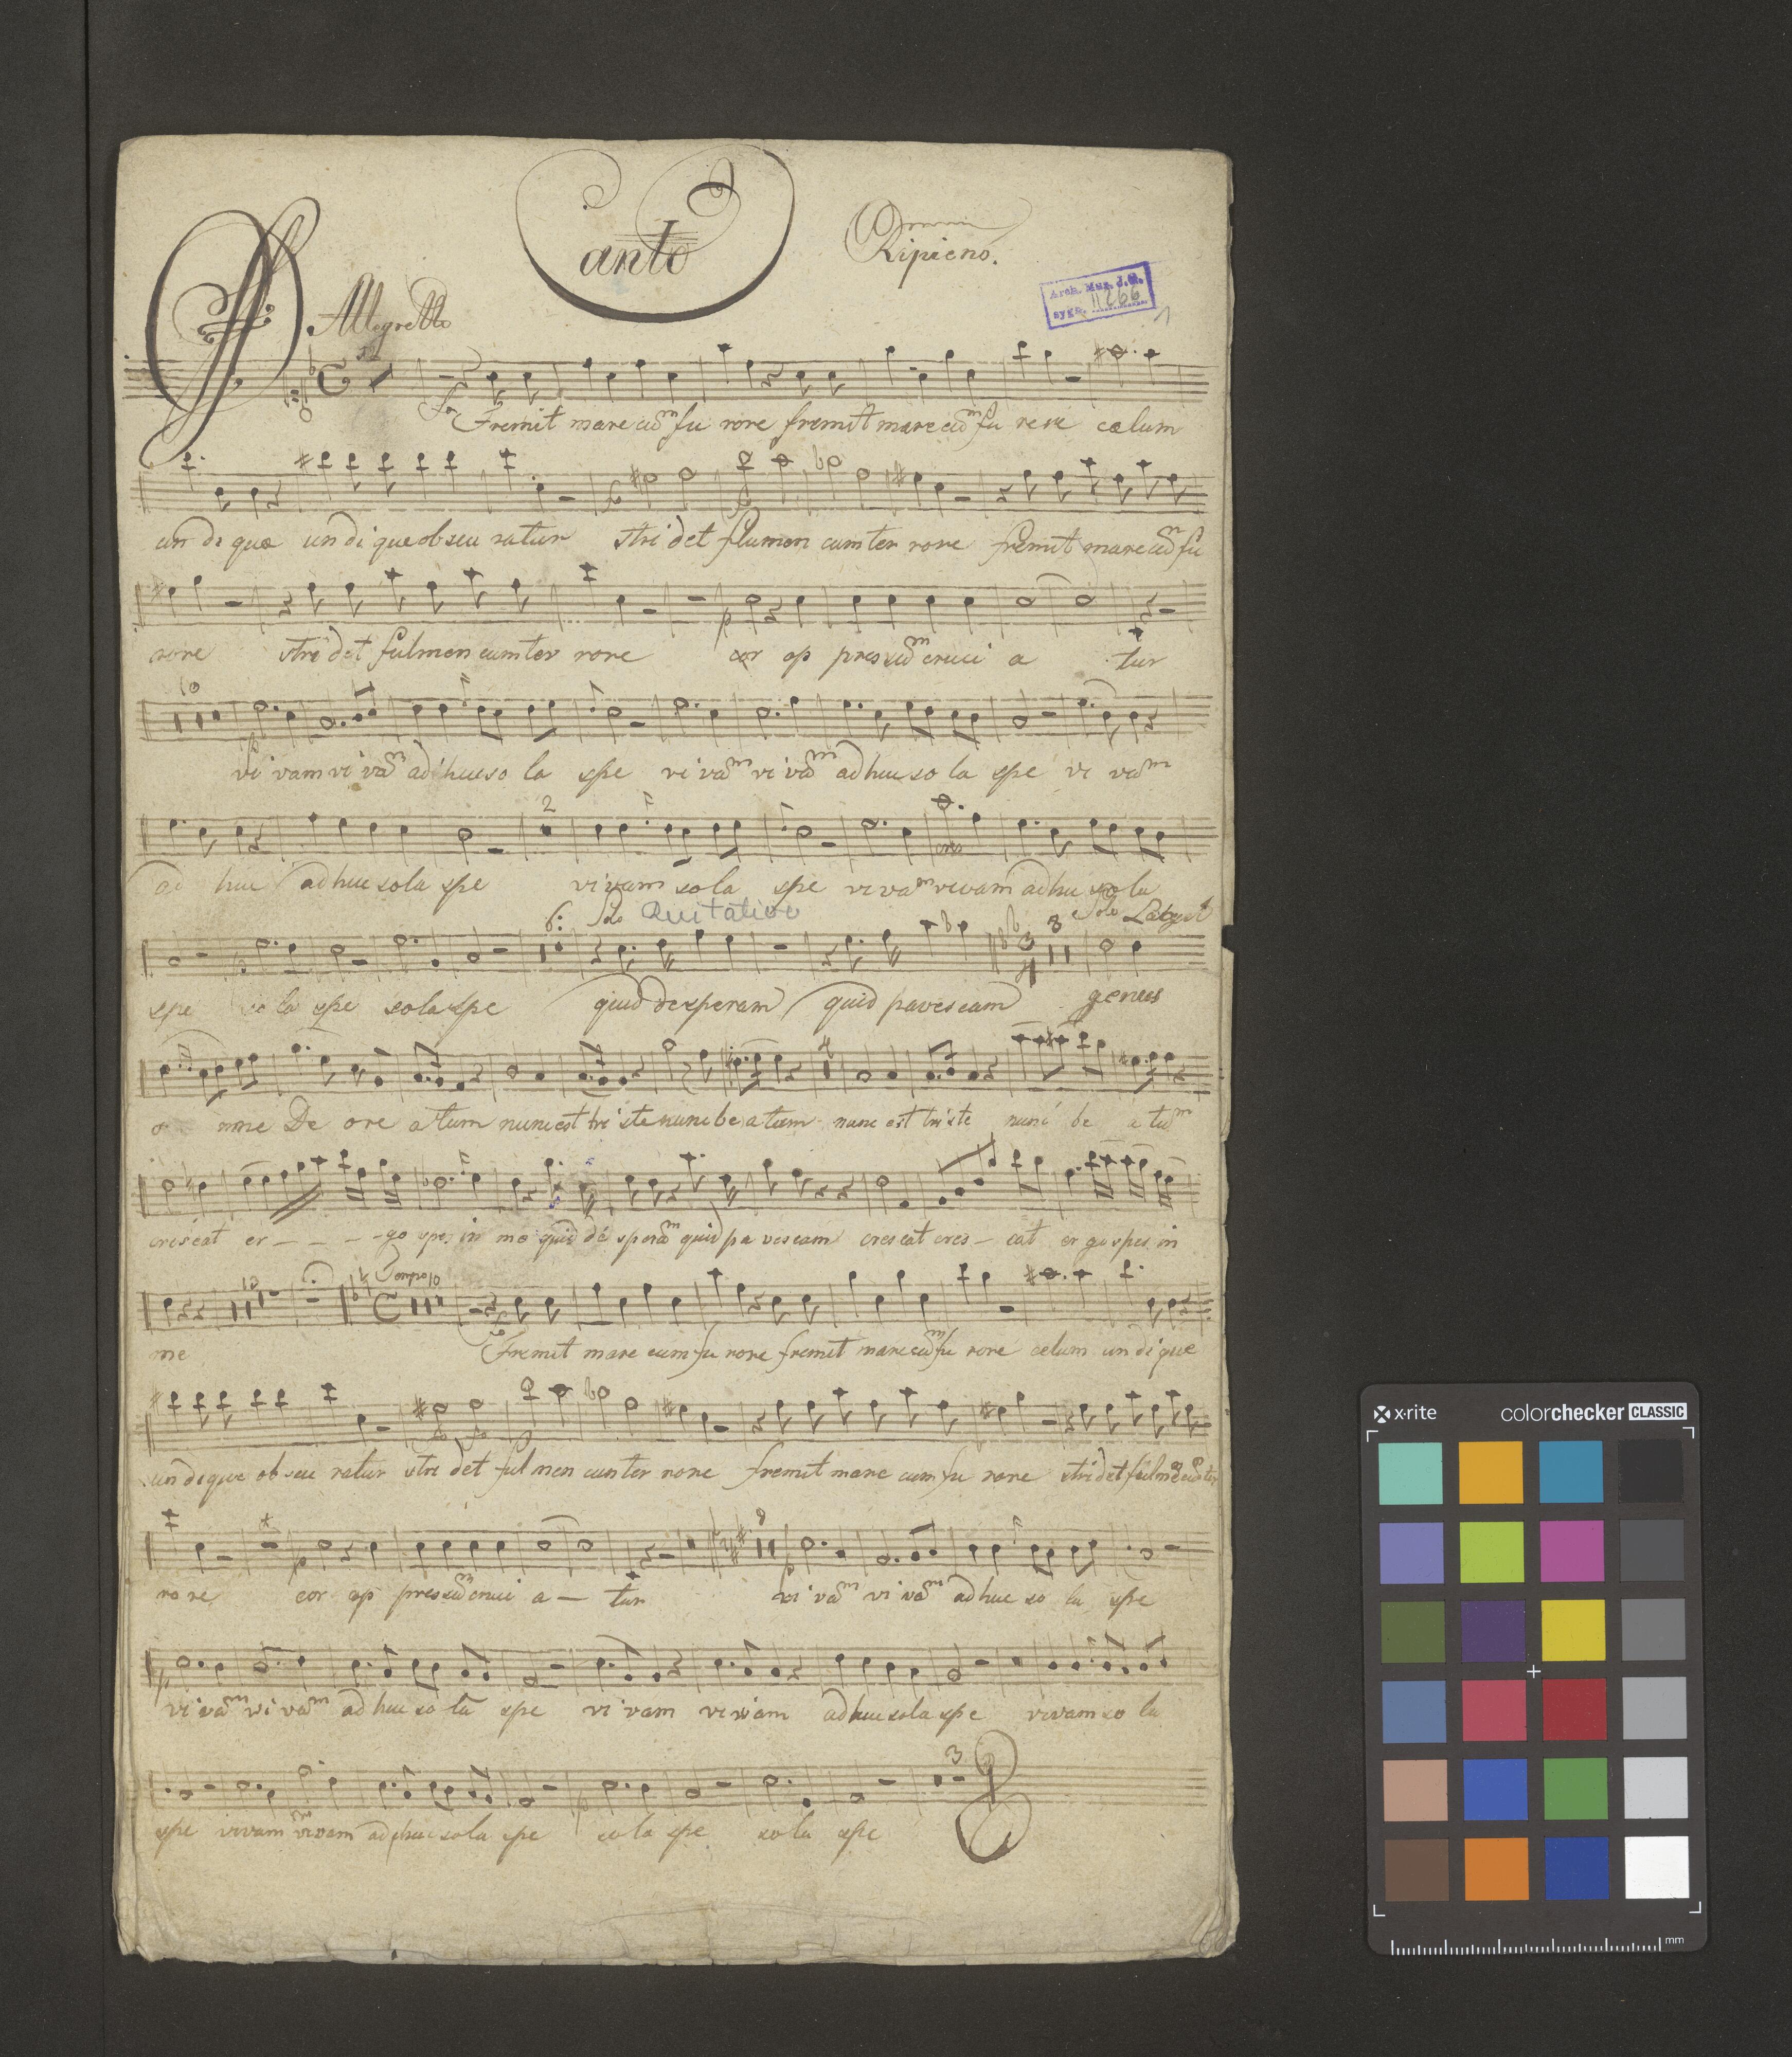 Canto
Ripieno.
Arch. Muz. J.G.
sygn. II 266
1
Allegretto
12
Fremit mare cum fu rore fremit mare cum fu rore cælum
un di quæ un di que obscu ratur stri det flumen cum ter rore fremit mare cum fu
rore stri det fulmen cum ter rore cor op pressum cruci a tur
10
vi vam vi vam ad huc so la spe vi vam vi vam ad huc so la spe vi vam
2
ad huc ad huc sola spe vivam sola spe viva m vivam ad hu so la
6: Solo Recitativo 3 Solo
spe so la spe sola spe quid desperam quid pavescam genus
4
o mne De ore a tum nunc est tri ste nunc be a tum nunc est triste nunc be a tum
crescat er - - - - go spes in me quid de speram quid pa vescam crescat cres - cat er go spes in
12 Tempo 10
me Fremit mare cum fu rore fremit mare cum fu rore celum un di que
un dique ob scu ratur stri det ful men cum ter rore fremit mare cum fu rore stri det fulmen cum ter
rore cor op pressum cruci a - tur vi vam vi vam ad huc so la spe
vi vam vi vam ad huc so la spe vi vam vi vam ad huc sola spe vivam so la
3
spe vivam vivam ad huc sola spe so la spe so la spe
x·rite
colorchecker CLASSIC
mm